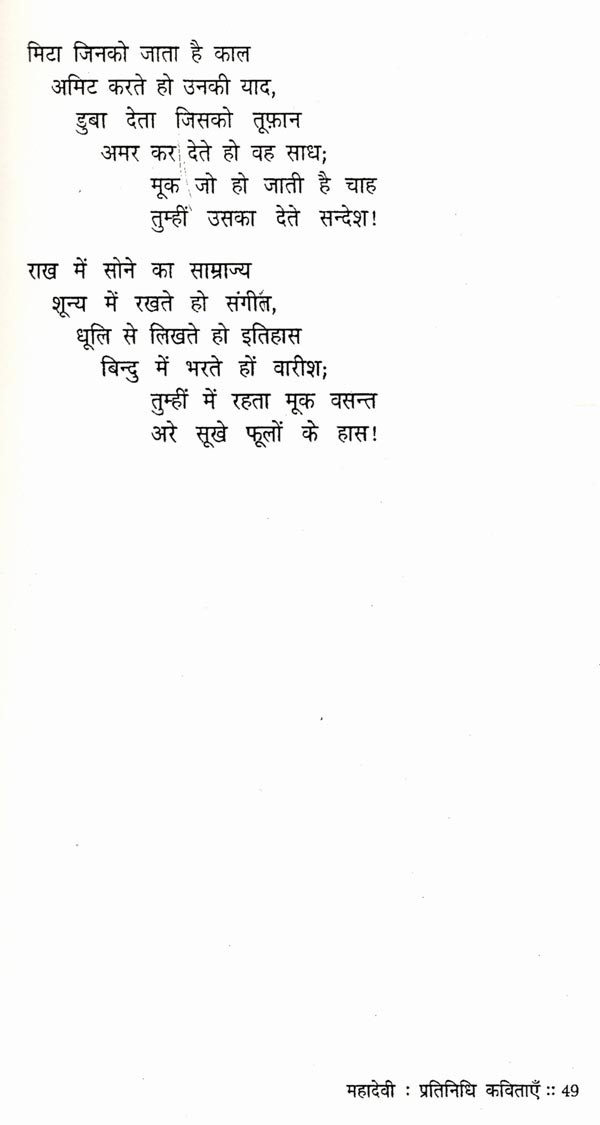 मिटा जिनको जाता है काल
अमिट करते हो उनकी याद,
डुबा देता जिसको तूफ़ान
अमर कर देते हो वह साध;
मूक जो हो जाती है चाह
तुम्हीं उसका देते सन्देश!
राख में सोने का साम्राज्य
शून्य में रखते हो संगीत,
धूलि से लिखते हो इतिहास
बिन्दु में भरते हों वारीश;
तुम्हीं में रहता मूक वसन्त
अरे सूखे फूलों के हास!
महादेवी : प्रतिनिधि कविताएँ :: 49